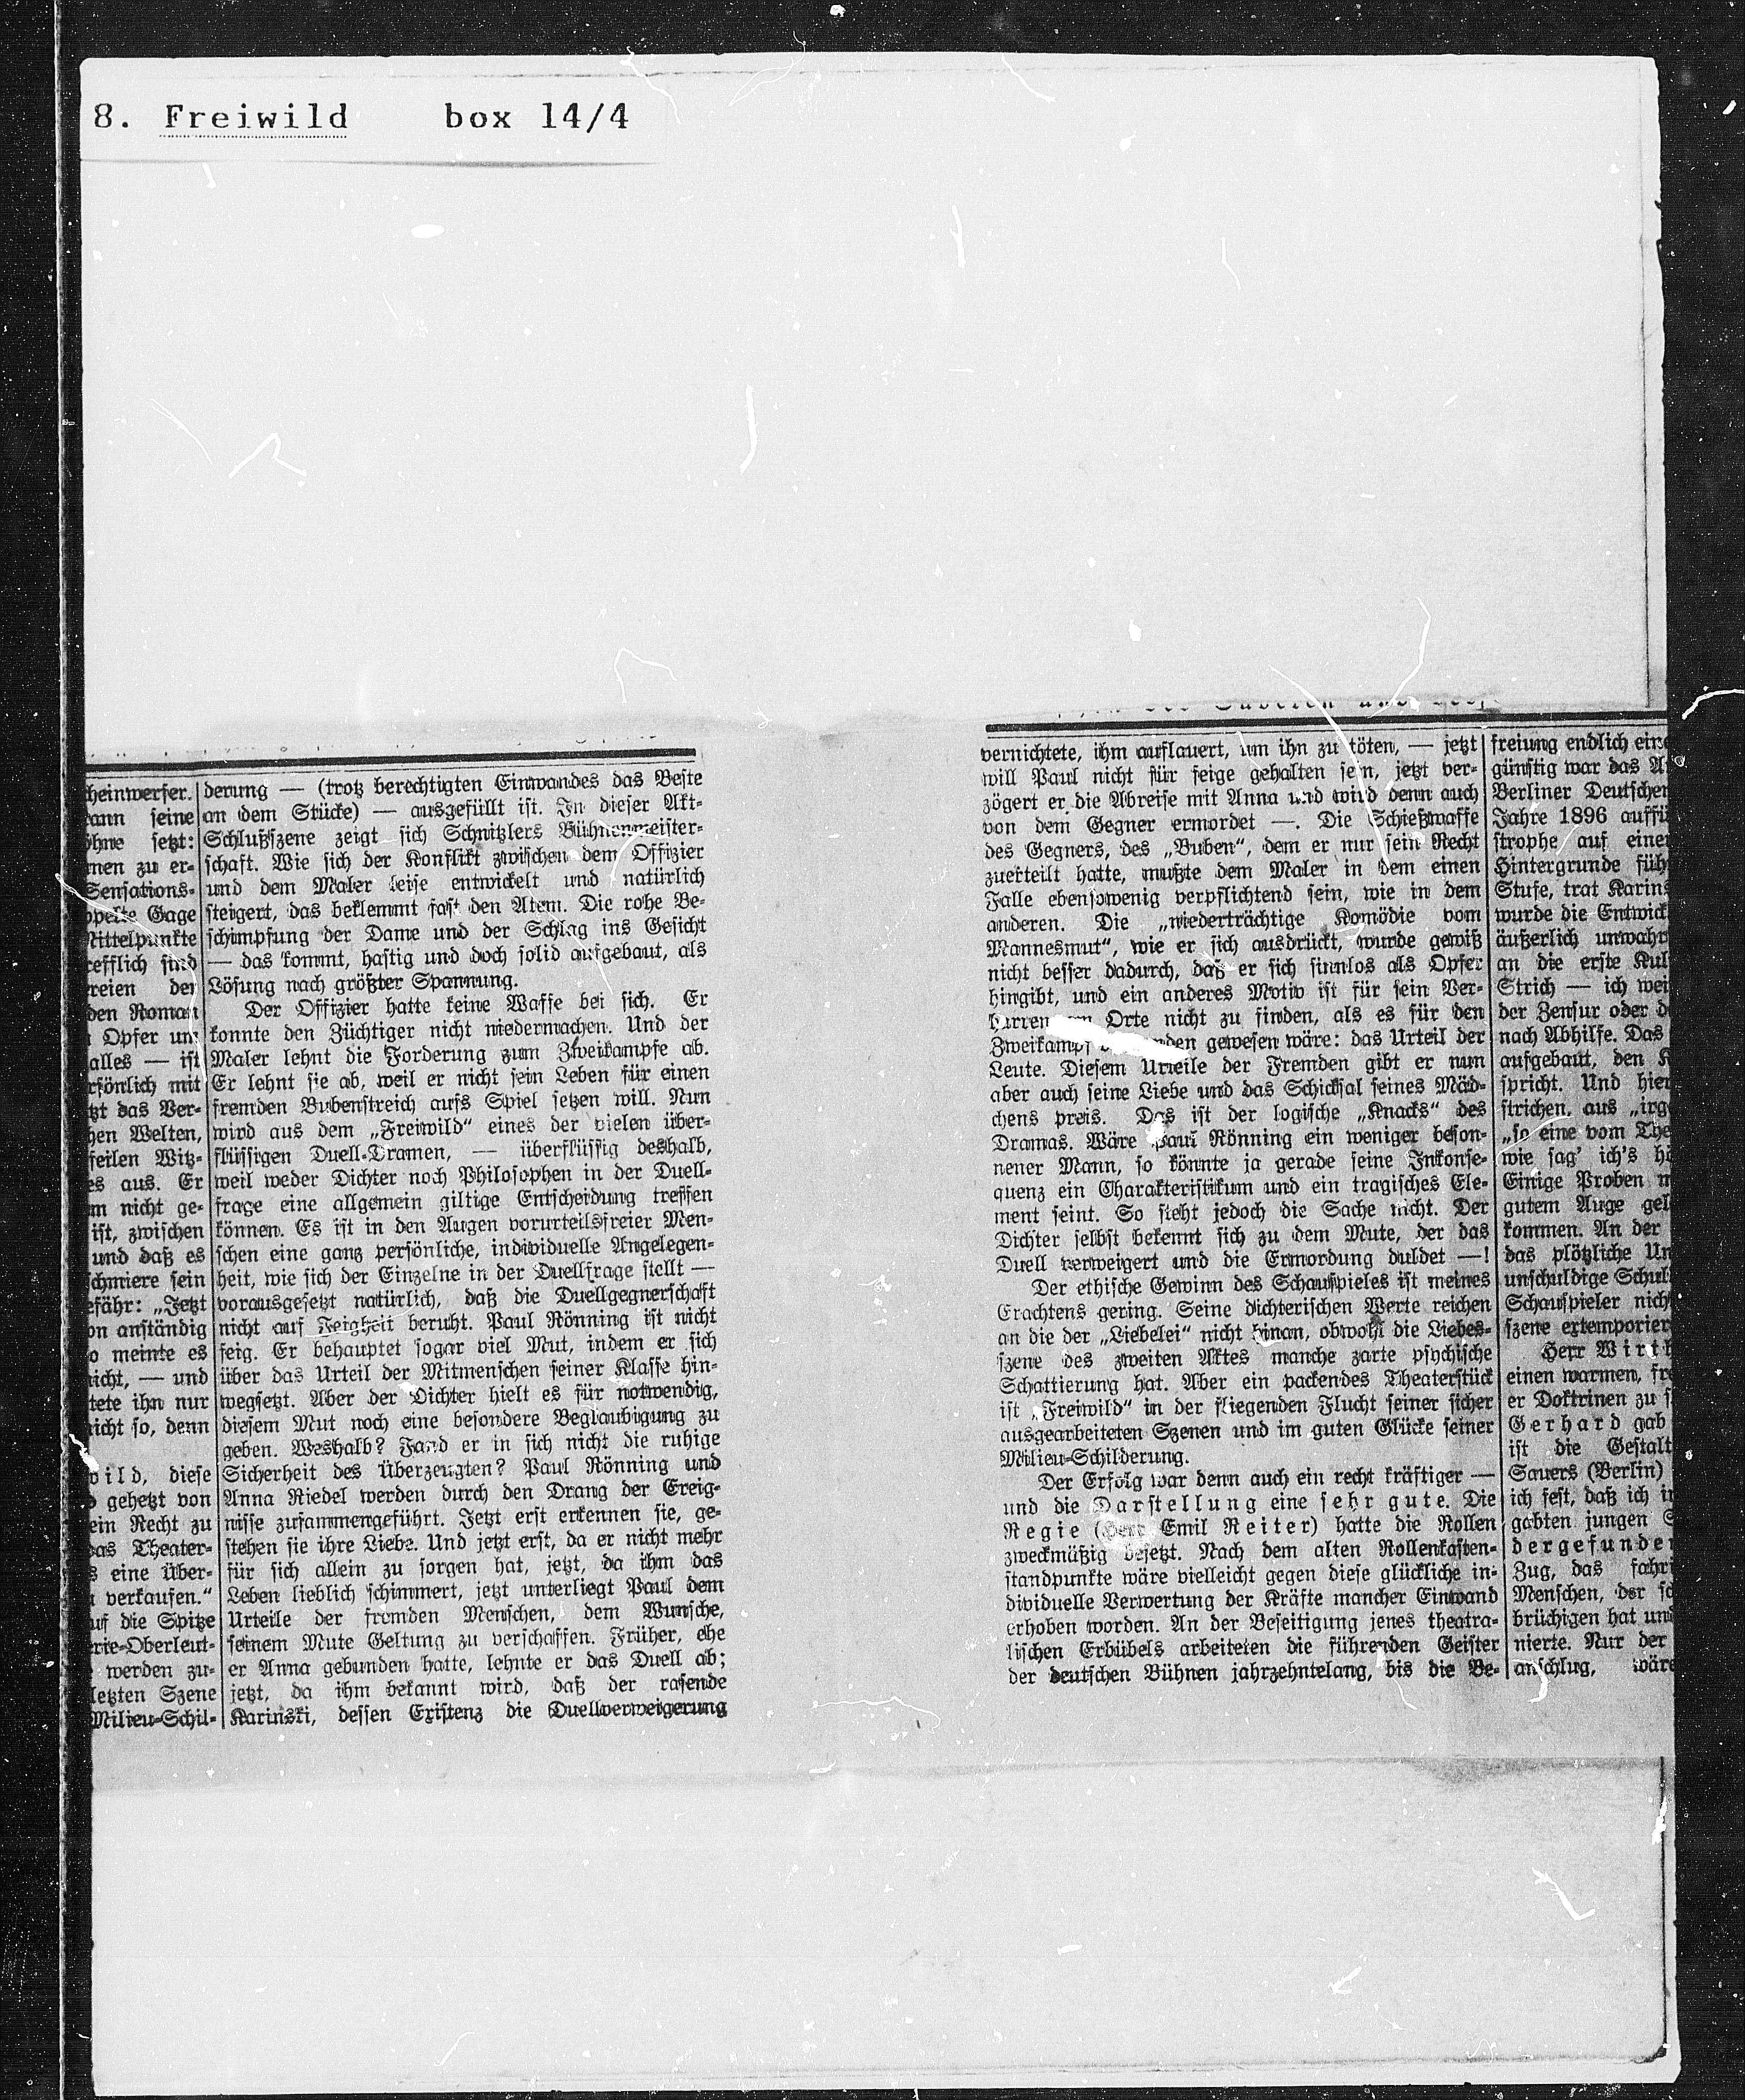 8. Freiwild box 14/4
heinwerfer.
ann seine
öhne jetzt:
nen zu er-
Sensations-
pelte Gage
Mittelpunkte
refflich sind
reien der
den Roman
Opfer um
alles — ist
rsönlich mit
tzt das Ver-
hen Welten,
feilen Witz-
es aus. Er
m nicht ge-
ist, zwischen
und daß es
schmiere sein
efähr: „Jetzt
on anständig
o meinte es
nicht, — und
tete ihn nur
nicht so, denn
wild, diese
gehetzt von
ein Recht zu
das Theater-
s eine Über-
verkaufen."
uf die Spitze
rie-Oberleut-
werden zu-
letzten Szene
Milieu-Schil-
derung — (trotz berechtigten Einwandes das Beste
an dem Stücke) — ausgefüllt ist. In dieser Akt-
Schlußszene zeigt sich Schnitzlers Bühnenmeister-
schaft. Wie sich der Konflikt zwischen dem Offizier
und dem Maler leise entwickelt und natürlich
steigert, das beklemmt fast den Atem. Die rohe Be-
schimpfung der Dame und der Schlag ins Gesicht
— das kommt, hastig und doch solid aufgebaut, als
Lösung nach größter Spannung.
Der Offizier hatte keine Waffe bei sich. Er
konnte den Züchtiger nicht niedermachen. Und der
Maler lehnt die Forderung zum Zweikampfe ab.
Er lehnt sie ab, weil er nicht sein Leben für einen
fremden Bubenstreich aufs Spiel setzen will. Nun
wird aus dem „Freiwild" eines der vielen über-
flüssigen Duell-Dramen, — überflüssig deshalb,
weil weder Dichter noch Philosophen in der Duell-
frage eine allgemein giltige Entscheidung treffen
können. Es ist in den Augen vorurteilsfreier Men-
schen eine ganz persönliche, individuelle Angelegen-
heit, wie sich der Einzelne in der Duellfrage stellt —
vorausgesetzt natürlich, daß die Duellgegnerschaft
nicht auf Feigheit beruht. Paul Rönning ist nicht
feig. Er behauptet sogar viel Mut, indem er sich
über das Urteil der Mitmenschen seiner Klasse hin-
wegsetzt. Aber der Dichter hielt es für notwendig,
diesem Mut noch eine besondere Beglaubigung zu
geben. Weshalb? Fand er in sich nicht die ruhige
Sicherheit des Überzeugten? Paul Rönning und
Anna Riedel werden durch den Drang der Ereig-
nisse zusammengeführt. Jetzt erst erkennen sie, ge-
stehen sie ihre Liebe. Und jetzt erst, da er nicht mehr
für sich allein zu sorgen hat, jetzt, da ihm das
Leben lieblich schimmert, jetzt unterliegt Paul dem
Urteile der fremden Menschen, dem Wunsche,
seinem Mute Geltung zu verschaffen. Früher, ehe
er Anna gebunden hatte, lehnte er das Duell ab;
jetzt, da ihm bekannt wird, daß der rasende
Karinski, dessen Existenz die Duellverweigerung
vernichtete, ihm auflauert, um ihn zu töten, — jetzt
will Paul nicht für feige gehalten sein, jetzt ver-
zögert er die Abreise mit Anna und wird denn auch
von dem Gegner ermordet —. Die Schießwaffe
des Gegners, des „Buben", dem er nur sein Recht
zuerteilt hatte, mußte dem Maler in dem einen
Falle ebensowenig verpflichtend sein, wie in dem
anderen. Die „niederträchtige Komödie vom
Mannesmut", wie er sich ausdrückt, wurde gewiß
nicht besser dadurch, daß er sich sinnlos als Opfer
hingibt, und ein anderes Motiv ist für sein Ver-
harren am Orte nicht zu finden, als es für den
Zweikampf den gewesen wäre: das Urteil der
Leute. Diesem Urteile der Fremden gibt er nun
aber auch seine Liebe und das Schicksal seines Mäd-
chens preis. Das ist der logische „Knacks" des
Dramas. Wäre Paul Rönning ein weniger beson-
nener Mann, so könnte ja gerade seine Inkonse-
quenz ein Charakteristikum und ein tragisches Ele-
ment seint. So steht jedoch die Sache nicht. Der
Dichter selbst bekennt sich zu dem Mute, der das
Duell verweigert und die Ermordung duldet —!
Der ethische Gewinn des Schauspieles ist meines
Erachtens gering. Seine dichterischen Werte reichen
an die der „Liebelei" nicht hinan, obwohl die Liebes-
szene des zweiten Aktes manche zarte psychische
Schattierung hat. Aber ein packendes Theaterstück
ist „Freiwild" in der fliegenden Flucht seiner sicher
ausgearbeiteten Szenen und im guten Glücke seiner
Milieu-Schilderung.
Der Erfolg war denn auch ein recht kräftiger —
und die Darstellung eine sehr gute. Die
Regie (Herr Emil Reiter) hatte die Rollen
zweckmäßig besetzt. Nach dem alten Rollenkasten-
standpunkte wäre vielleicht gegen diese glückliche in-
dividuelle Verwertung der Kräfte mancher Einwand
erhoben worden. An der Beseitigung jenes theatra-
lischen Erbübels arbeiteten die führenden Geister
der deutschen Bühnen jahrzehntelang, bis die Be-
freiung endlich eine
günstig war das A
Berliner Deutschen
Jahre 1896 auffü
strophe auf einer
Hintergrunde füh
Stufe, trat Karins
wurde die Entwick
äußerlich unwahr
an die erste Kul
Strich — ich wei
der Zensur oder d
nach Abhilfe. Das
aufgebaut, den K
spricht. Und hier
strichen, aus „irg
„so eine vom The
wie sag' ich's hö
Einige Proben m
gutem Auge gel
kommen. An der
das plötzliche Un
unschuldige Schul
Schauspieler nich
szene extemporier
Herr Wirth
einen warmen, fre
er Doktrinen zu s
Gerhard gab
ist die Gestalt
Sauers (Berlin)
ich fest, daß ich in
gabten jungen S
dergefunden
Zug, das fahri
Menschen, der sc
brüchigen hat und
nierte. Nur der
anschlug, wäre